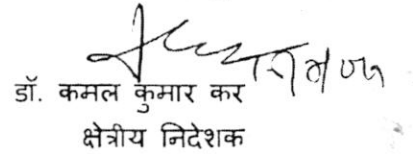 डॉ. कमल कुमार कर
क्षेत्रीय निदेशक